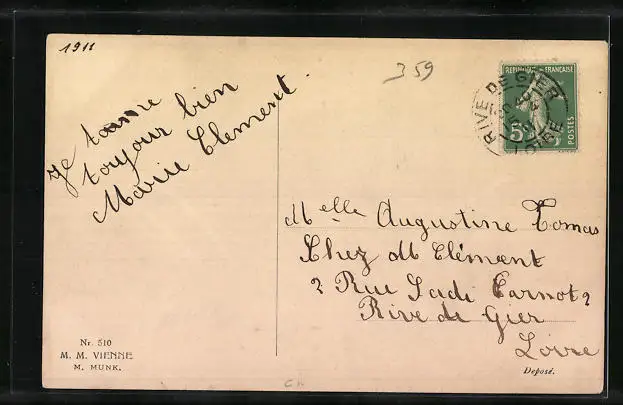 1911
359
REPUBLIQUE FRANÇAISE
RIVE DE GIER
LOIRE
5
POSTES
Je t'aime
toujour bien
Marie Clement.
Melle Augustine Tomas
Chez M Clément
2 Rue Sadi Carnot 2
Rive de Gier
Loire
Nr. 510
M. M. VIENNE
M. MUNK.
Deposé.